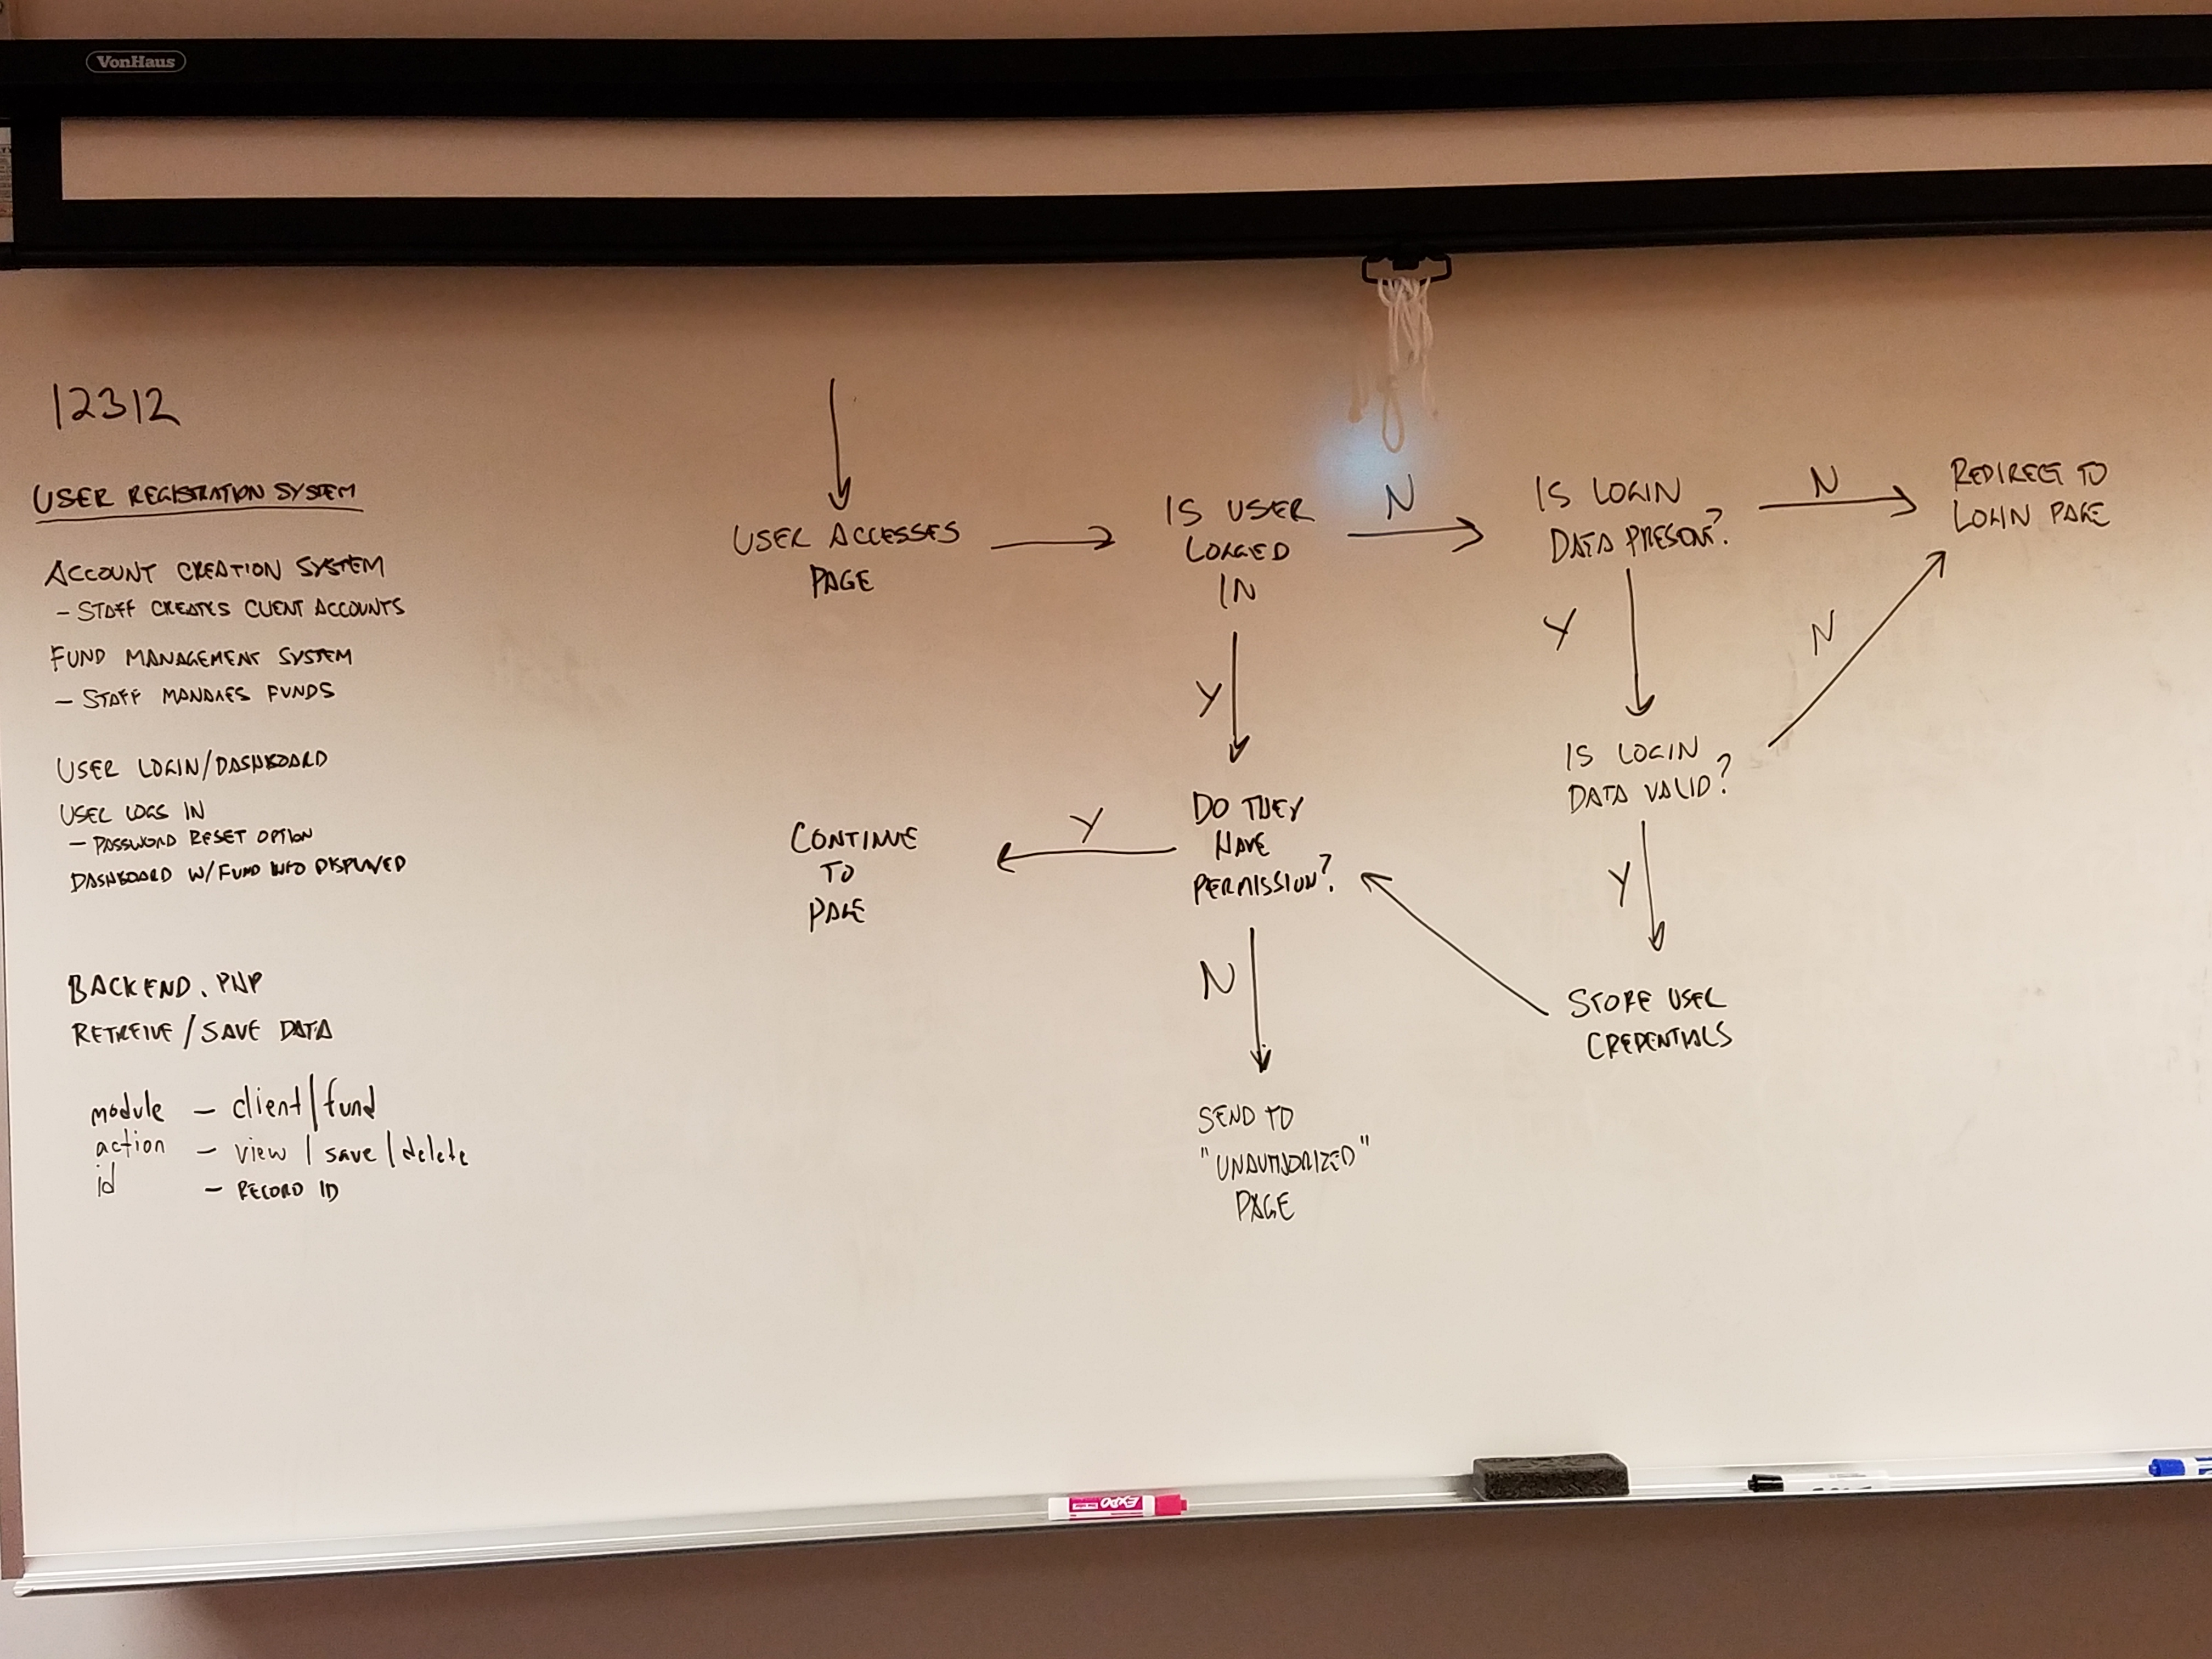 VonHaus
12312
USER REGISTRATION SYSTEM
ACCOUNT CREATION SYSTEM
- STAFF CREATES CLIENT ACCOUNTS
FUND MANAGEMENT SYSTEM
- STAFF MANAGES FUNDS
USER LOGIN/DASHBOARD
USER LOGS IN
- PASSWORD RESET OPTION
DASHBOARD W/FUND INFO DISPLAYED
BACKEND.PHP
RETREIVE/SAVE DATA
module - client/fund
action - view | save | delete
id - RECORD ID
USER ACCESSES
PAGE
IS USER
LOGGED
IN
N
IS LOGIN
DATA PRESENT?
N
REDIRECT TO
LOGIN PAGE
Y
Y
N
IS LOGIN
DATA VALID?
DO THEY
HAVE
PERMISSION?
Y
CONTINUE
TO
PAGE
Y
N
STORE USER
CREDENTIALS
SEND TO
"UNAUTHORIZED"
PAGE
EXPO